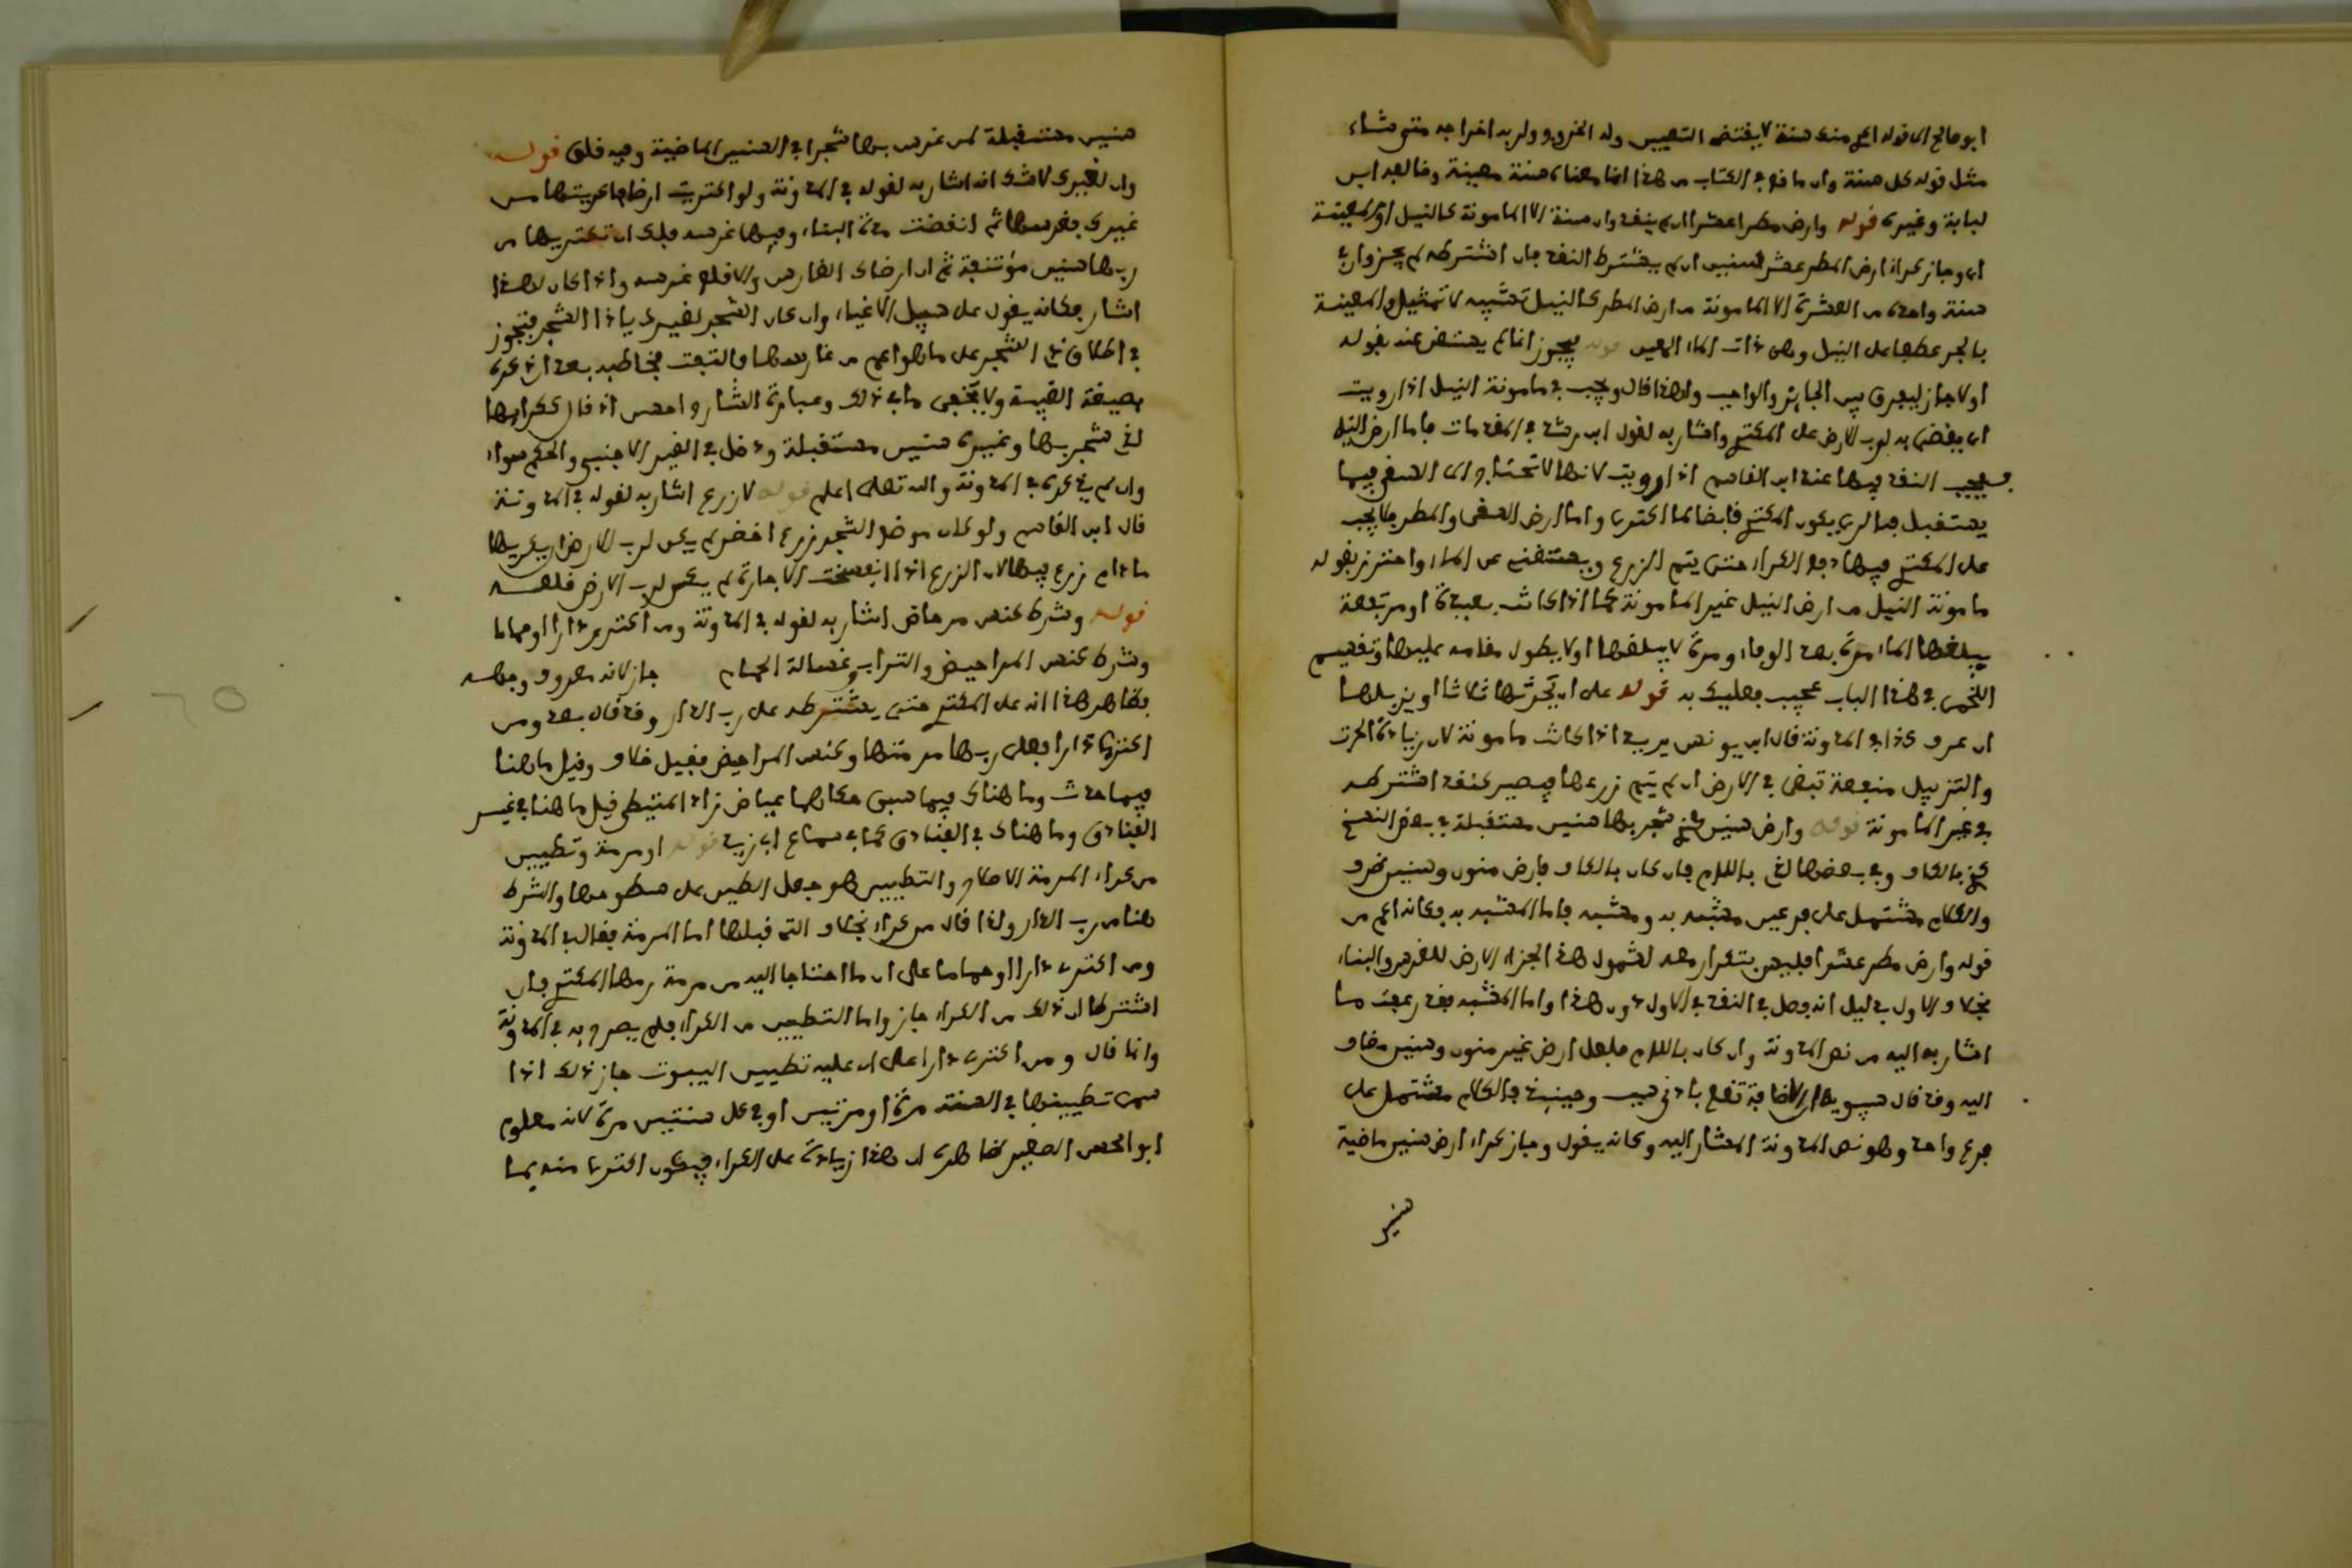 ابو صالح ان قوله اكري منك سنة لا يقتضي التعيين وله الخروج ولربه اخراجه متى شاء
مثل قوله كل سنة وان ما وقع في الكتاب من هذا انما معناه سنة معينة وخالفه ابن
لبابة وغيره قوله وارض مطر عشرا ان لم ينقد وان سنة الا المامونة كالنيل او المعينة
اي وجاز كراء ارض المطر عشر سنين ان لم يشترط النقد فان اشترطه لم يجز وان في
سنة واحدة من العشرة الا المامونة من ارض المطر كالنيل تشبيه لا تمثيل والمعينة
بالجر عطفا على النيل وهي ذات الماء المعين قوله فيجوز انما لم يستغن عنه بقوله
اولا جاز ليفرق بين الجائز والواجب ولهذا قال ويجب في مامونة النيل اذا رويت
اي يقضى به لرب الارض على المكتري واشار به لقول ابن رشد في المقدمات فاما ارض النيل
فيجب النقد فيها عند ابن القاسم اذا رويت لانها لا تحتاج الى السقي فيما
يستقبل فبالري يكون المكتري قابضا لما اكترى واما ارض السقي والمطر فلا يجب
على المكتري فيها دفع الكراء حتى يتم الزرع ويستغني عن الماء واحترز بقوله
مامونة النيل من ارض النيل غير المامونة كما اذا كانت بعيدة او مرتفعة
يبلغها الماء مرة بعد الوفاء ومرة لا يبلغها او لا يطول مقامه عليها وتقسيم
اللخمي في هذا الباب عجيب فعليك به قوله على ان يحرثها ثلاثا او يزبلها
ان عرف كذا في المدونة قال ابن يونس يريد اذا كانت مامونة لان زيادة الحرث
والتزبيل منفعة تبقى في الارض ان لم يتم زرعها فيصير كنقد اشترطه
في غير المامونة قوله وارض سنين كذي شجر بها سنين مستقبلة في بعض النسخ
كذي بالكاف وفي بعضها لذي باللام فان كان بالكاف فارض منون وسنين ظرف
والكلام مشتمل على فرعين مشبه به ومشبه فاما المشبه به فكانه اعم من
قوله وارض مطر عشرا فليس بتكرار معه لشمول هذا الجزاء الارض للغرس والبناء
بخلاف الاول بدليل انه فصل في النقد في الاول دون هذا واما المشبه فقد رمت ما
اشار به اليه من نص المدونة وان كان باللام فلعل ارض غير منون وسنين مضاف
اليه وقد قال سيبويه ان الاضافة تقع بادنى سبب وحينئذ فالكلام مشتمل على
فرع واحد وهو نص المدونة المشار اليه وكانه يقول وجاز كراء ارض سنين ماضية
سنين
سنين مستقبلة لمن غرس بها شجرا في السنين الماضية وفيه قلق قوله
وان لغيرك لا شك انه اشار به لقوله في المدونة ولو اكتريت ارضا فاكريتها من
غيرك فغرسها ثم انقضت مدة البناء وفيها غرسه فلك ان تكتريها من
ربها سنين مؤتنفة ثم ان ارضاك الغارس والا قلع غرسه واذا كان لهذا
اشار فكانه يقول على سبيل الاغياء وان كان الشجر لغيرك يا ذا الشجر فتجوز
في اطلاق ذا الشجر على ما هو اعم من غارسها والتفت فخاطبه بعد ان ذكره
بصيغة الغيبة ولا يخفى ما في ذلك وعبارة الشارح احسن اذ قال ككرائها
لذي شجر بها وغيره سنين مستقبلة ودخل في الغير الاجنبي والحكم سواء
وان لم يذكره في المدونة والله تعلى اعلم قوله لا زرع اشار به لقوله في المدونة
قال ابن القاسم ولو كان موضع الشجر زرع اخضر لم يكن لرب الارض ان يكريها
ما دام زرع فيها لان الزرع اذا انفسخت الاجارة لم يكن لرب الارض قلعه
قوله وشرط كنس مرحاض اشار به لقوله في المدونة ومن اكترى دارا او حماما
وشرط كنس المراحيض والتراب وغسالة الحمام جاز لانه معروف وجهه
فظاهر هذا انه على المكتري حتى يشترطه على رب الدار وقد قال بعد ومن
اكترى دارا فعلى ربها مرمتها وكنس المراحيض فقيل خلاف وقيل ما هنا
فيما حدث وما هناك فيما سبق مكانها عياض زاد المتيطي قيل ما هنا في غير
الفنادق وما هناك في الفنادق كما في سماع ابي زيد قوله او مرمة وتطيين
من كراء المرمة الاصلاح والتطيين هو جعل الطين على سطوحها والشرط
هنا من رب الدار ولذا قال من كراء بخلاف التي قبلها اما المرمة فقال في المدونة
ومن اكترى دارا او حماما على ان ما احتاجا اليه من مرمة رمها المكتري فان
اشترطا ان ذلك من الكراء جاز واما التطيين من الكراء فلم يصرح به في المدونة
وانما قال ومن اكترى دارا على ان عليه تطيين البيوت جاز ذلك اذا
سمى تطيينها في السنة مرة او مرتين او في كل سنتين مرة لانه معلوم
ابو الحسن الصغير ظاهره ان هذا زيادة على الكراء فيكون اكترى منه بما